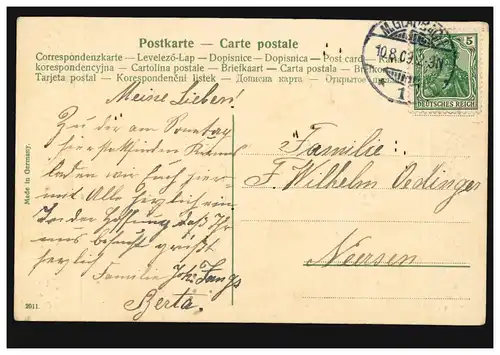 Postkarte – Carte postale
Correspondenzkarte – Levelező-Lap – Dopisnice – Dopisnica – Post card –
korespondencyjna – Cartolina postale – Briefkaart – Carta postala –
Tarjeta postal – Korespondenční lístek – Дописна карта – Открытое
M.GLADBACH
10.8.09
1
5
DEUTSCHES REICH
Made in Germany.
2011.
Meine Lieben!
Zu der am Sonntag
hier stattfindenden Kirmes
laden wir Euch hier-
mit Alle herzlich ein
In der Hoffnung daß Ihr
uns besucht grüßt
herzlich
Familie Joh. Jangs
Berta
Familie
F. Wilhelm Oedinger
Neersen